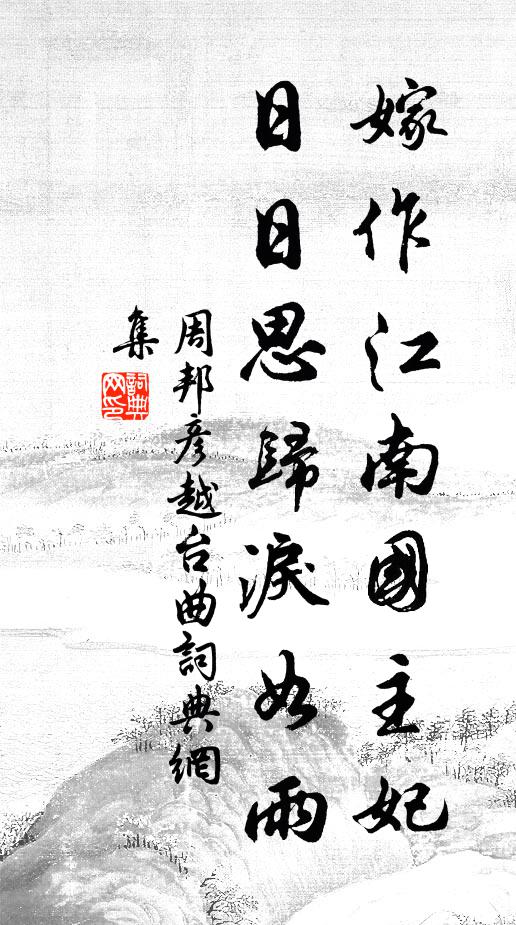 嫁作江南國主妃
日日思歸淚如雨
周邦彥越台曲詞典網
集
詞典
网印